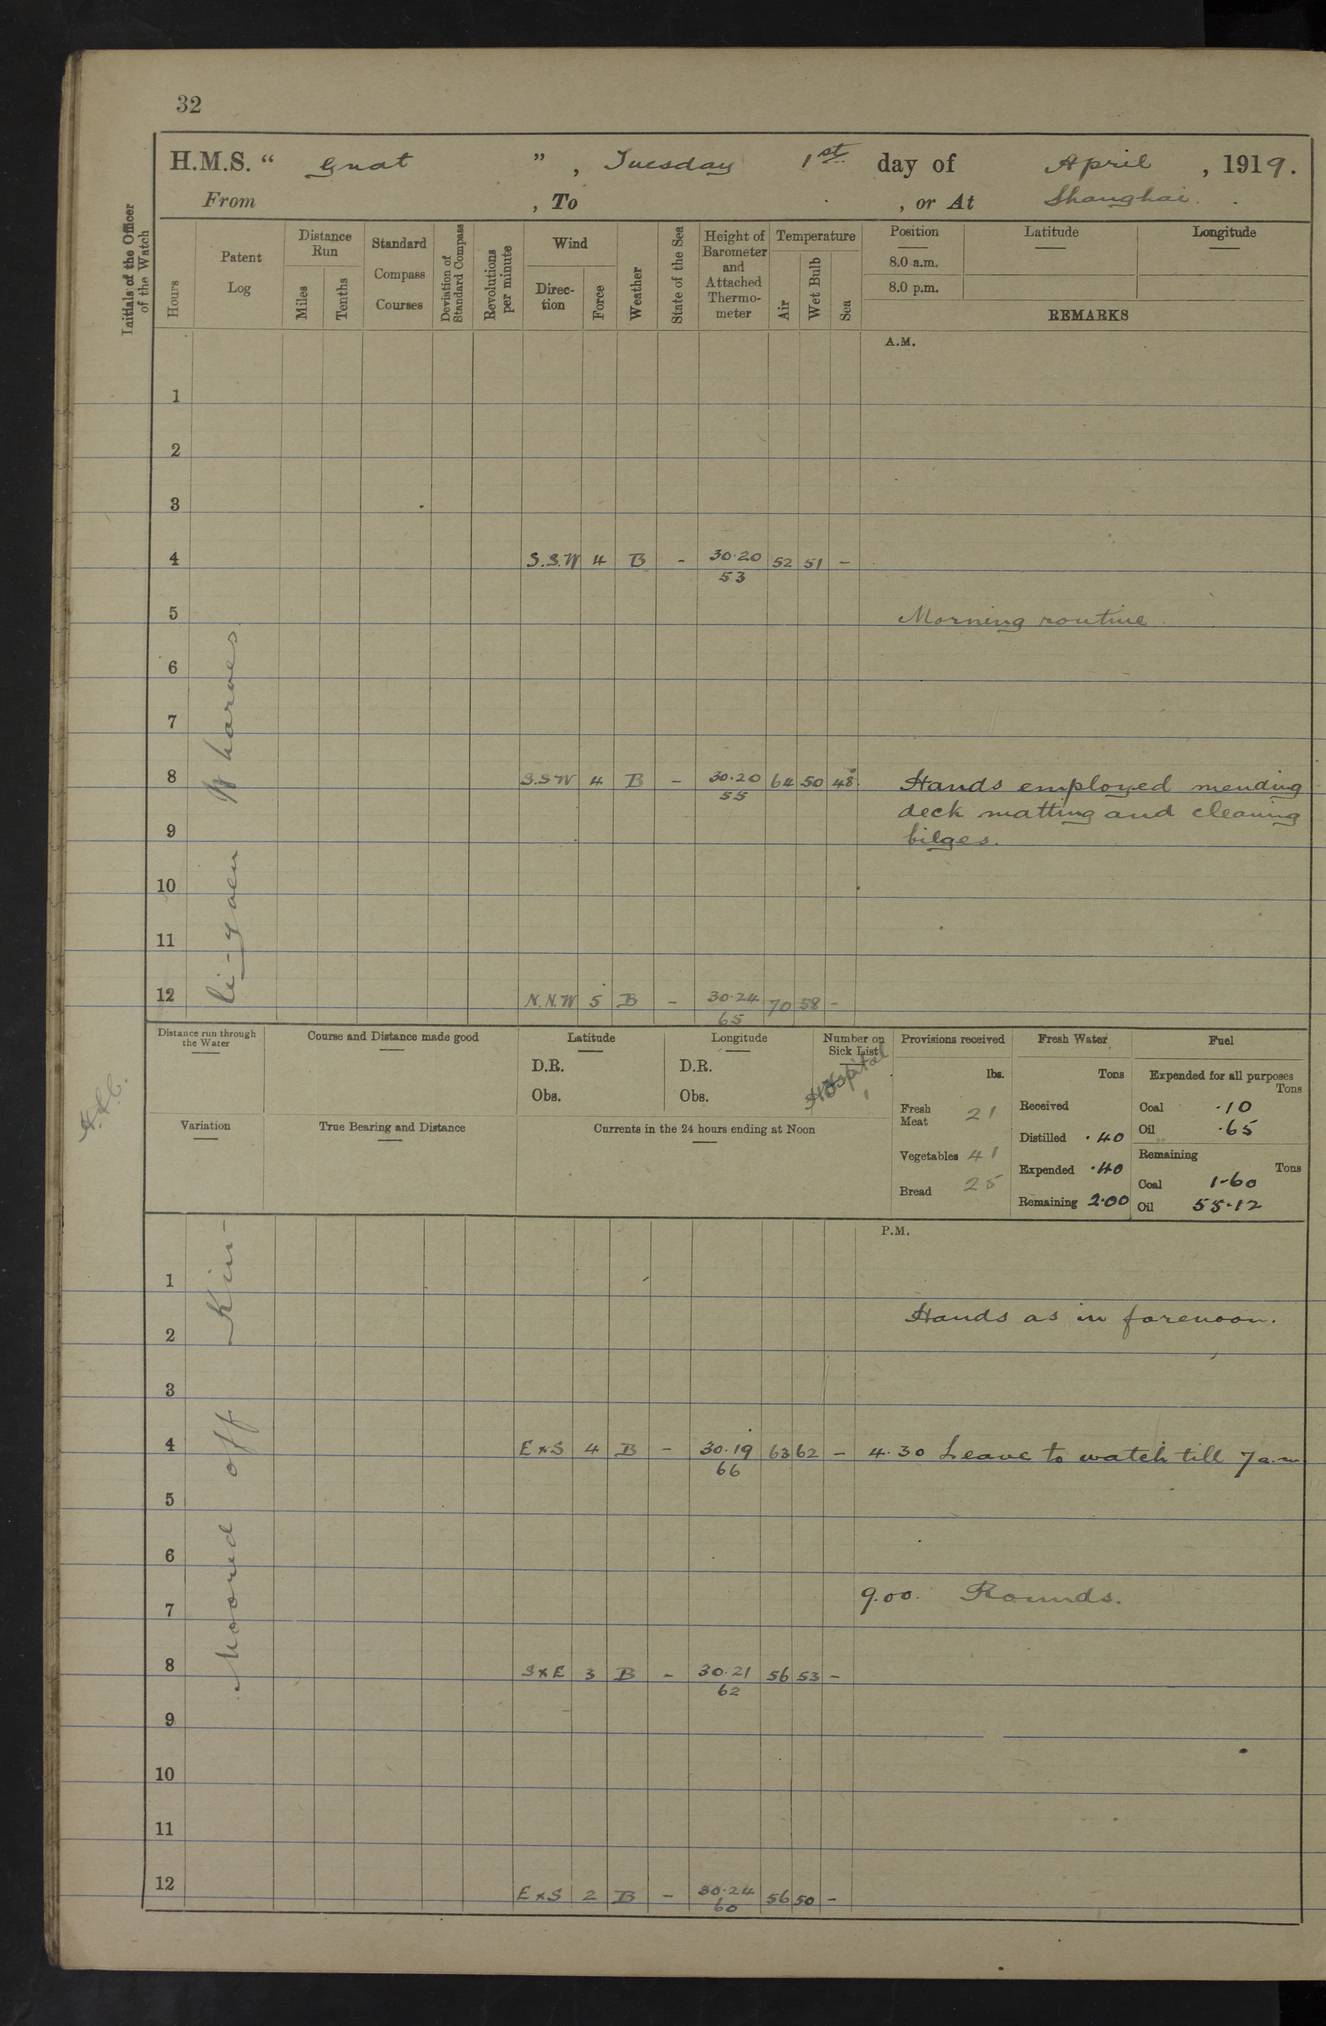 32
H.M.S. " Gnat ", Tuesday 1st day of April, 1919.
From , To , or At Shanghai.
Initials of the Officer of the Watch
Hours
Patent Log
Distance Run
Miles
Tenths
Standard Compass Courses
Deviation of Standard Compass
Revolutions per minute
Wind
Direction
Force
Weather
State of the Sea
Height of Barometer and Attached Thermometer
Temperature
Air
Wet Bulb
Sea
Position Latitude Longitude
8.0 a.m.
8.0 p.m.
REMARKS
A.M.
1
2
3
4 S.S.W 4 B - 30.20 52 51 -
53
5 Morning routine
6
7
8 S.S W 4 B - 30.20 64 50 48. Hands employed mending
55
deck matting and cleaning
9 bilges.
10
11
12 N.N.W 5 B - 30.24 70 58 -
65
Distance run through the Water
Course and Distance made good
Latitude
D.R.
Obs.
Longitude
D.R.
Obs.
Number on Sick List
Hospital 1
Provisions received
lbs.
Fresh Meat 21
Vegetables 41
Bread 25
Fresh Water
Tons
Received
Distilled .40
Expended .40
Remaining 2.00
Fuel
Expended for all purposes
Tons
Coal .10
Oil .65
Remaining
Tons
Coal 1.60
Oil 55.12
Variation
True Bearing and Distance
Currents in the 24 hours ending at Noon
P.M.
1
Hands as in forenoon.
2
3
4 E x S 4 B - 30.19 63 62 - 4.30 Leave to watch till 7 a.m.
66
5
6
9.00. Rounds.
7
8 S x E 3 B - 30.21 56 53 -
62
9
10
11
12 E x S 2 B - 30.24 56 50 -
60
Moored off Kin-
li-yaen Wharves.